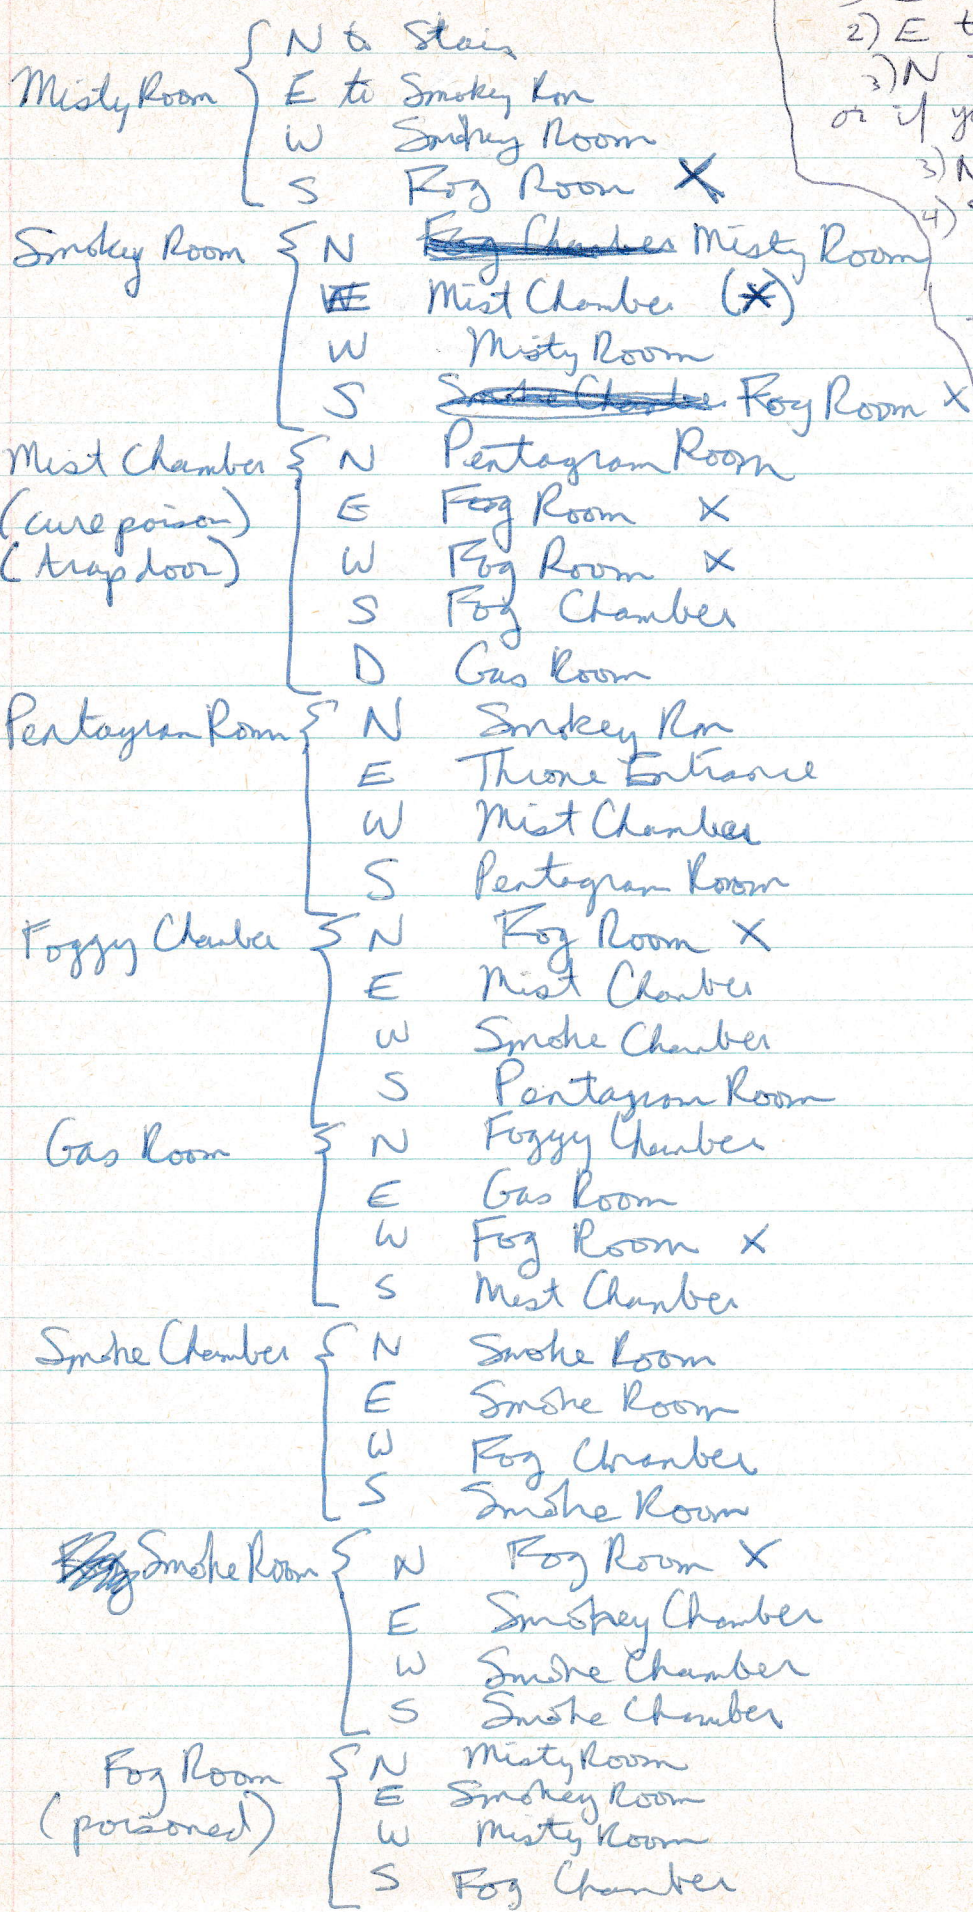 N to Stairs
2) E t
Misty Room
E to Smokey Rm
3) N
W Smokey Room
or if yo
S Fog Room X
3) N
4)
Smokey Room
N Fog Chamber Misty Room
E Mist Chamber (X)
W Misty Room
S Smoke Chamber Fog Room X
Mist Chamber
N Pentagram Room
(cure poison)
E Fog Room X
(trap door)
W Fog Room X
S Fog Chamber
D Gas Room
Pentagram Room
N Smokey Rm
E Throne Entrance
W Mist Chamber
S Pentagram Room
Foggy Chamber
N Fog Room X
E Mist Chamber
W Smoke Chamber
S Pentagram Room
Gas Room
N Foggy Chamber
E Gas Room
W Fog Room X
S Mist Chamber
Smoke Chamber
N Smoke Room
E Smoke Room
W Fog Chamber
S Smoke Room
Smoke Room
N Fog Room X
E Smokey Chamber
W Smoke Chamber
S Smoke Chamber
Fog Room
N Misty Room
(poisoned)
E Smokey Room
W Misty Room
S Fog Chamber